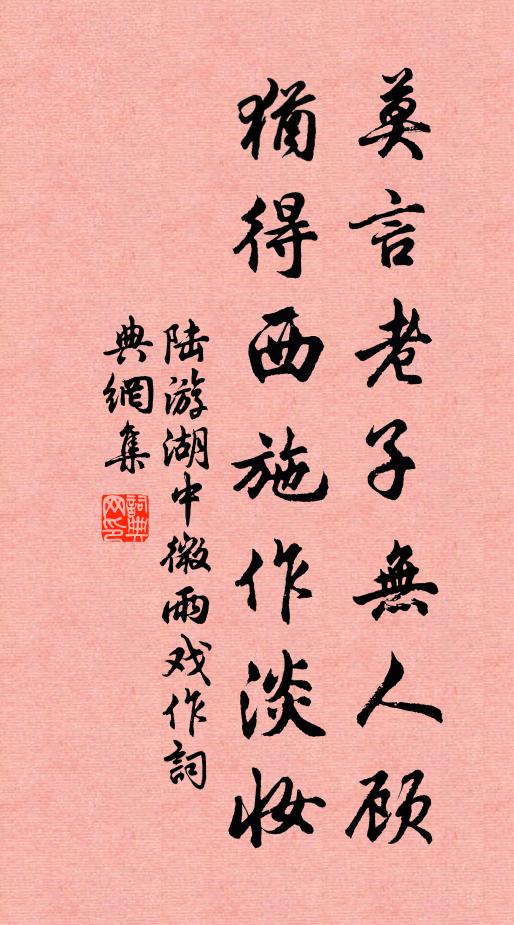 莫言老子無人顾
猶得西施作淡妆
陆游湖中微雨戏作詞
典網集
詞典網印